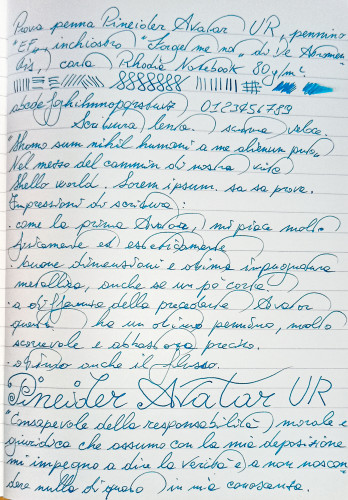 Prova penna Pineider Avatar UR, pennino
"EF", inchiostro "Forget me not" di De Atramen
tis, carta Rhodia Notebook 80g/m²
abcdefghilmnopqrstuvz 0123456789
Scrittura lenta. scrittura veloce.
"Homo sum nihil humani a me alienum puto"
Nel mezzo del cammin di nostra vita
Hello world. Lorem ipsum. sa sa prova.
Impressioni di scrittura:
- come la prima Avatar, mi piace molto
fisicamente ed esteticamente
- buone dimensioni e ottima impugnatura
metallica, anche se un po' corta
- a differenza della precedente Avatar
questa ha un ottimo pennino, molto
scorrevole e abbastanza preciso.
- ottimo anche il flusso.
Pineider Avatar UR
"Consapevole della responsabilità morale e
giuridica che assumo con la mia deposizione
mi impegno a dire la verità e a non nascon
dere nulla di quanto in mia conoscenza.